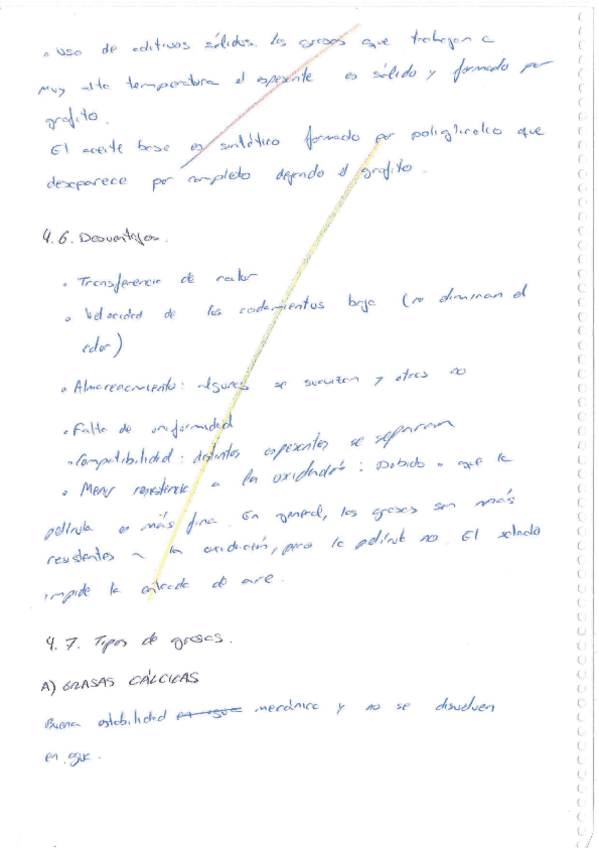 • Uso de aditivos sólidos. Las grasas que trabajan a
muy alta temperatura el espesante es sólido y formado por
grafito.
El aceite base es sintético formado por poliglicoles que
desaparece por completo dejando el grafito.
4.6. Desventajas.
• Transferencia de calor
• Velocidad de los rodamientos baja (no eliminan el
calor)
• Almacenamiento: algunas se suavizan y otras no
• Falta de uniformidad
• Compatibilidad: distintos espesantes se separan
• Menor resistencia a la oxidación: Debido a que la
película es más fina. En general, las grasas son más
resistentes a la oxidación, pero la película no. El sellado
impide la entrada de aire.
4.7. Tipos de grasas.
A) GRASAS CÁLCICAS
Buena estabilidad mecánica y no se disuelven
en agua.